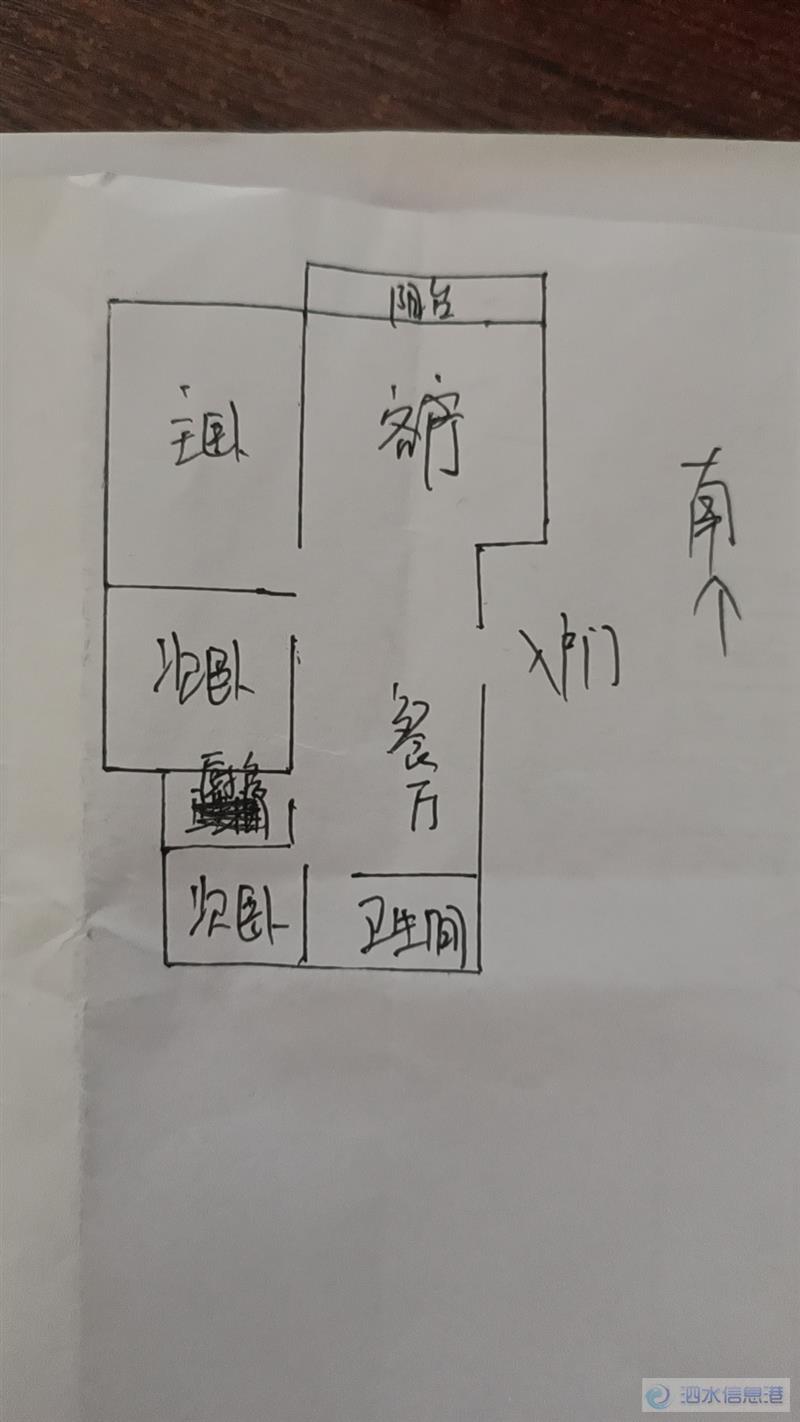 阳台
主卧
客厅
南
次卧
入户门
餐
厅
厨房
次卧
卫生间
泗水信息港